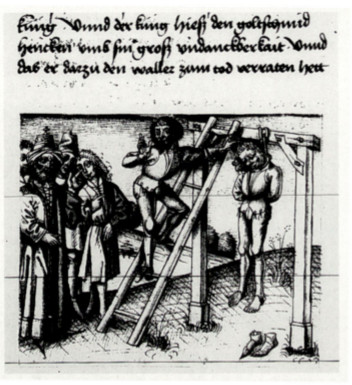 küng Vnnd der küng hiess den goltschmid
hencken vmb sin gross vndanckberkait Vnnd
das er darzu den waller zum tod verraten hett